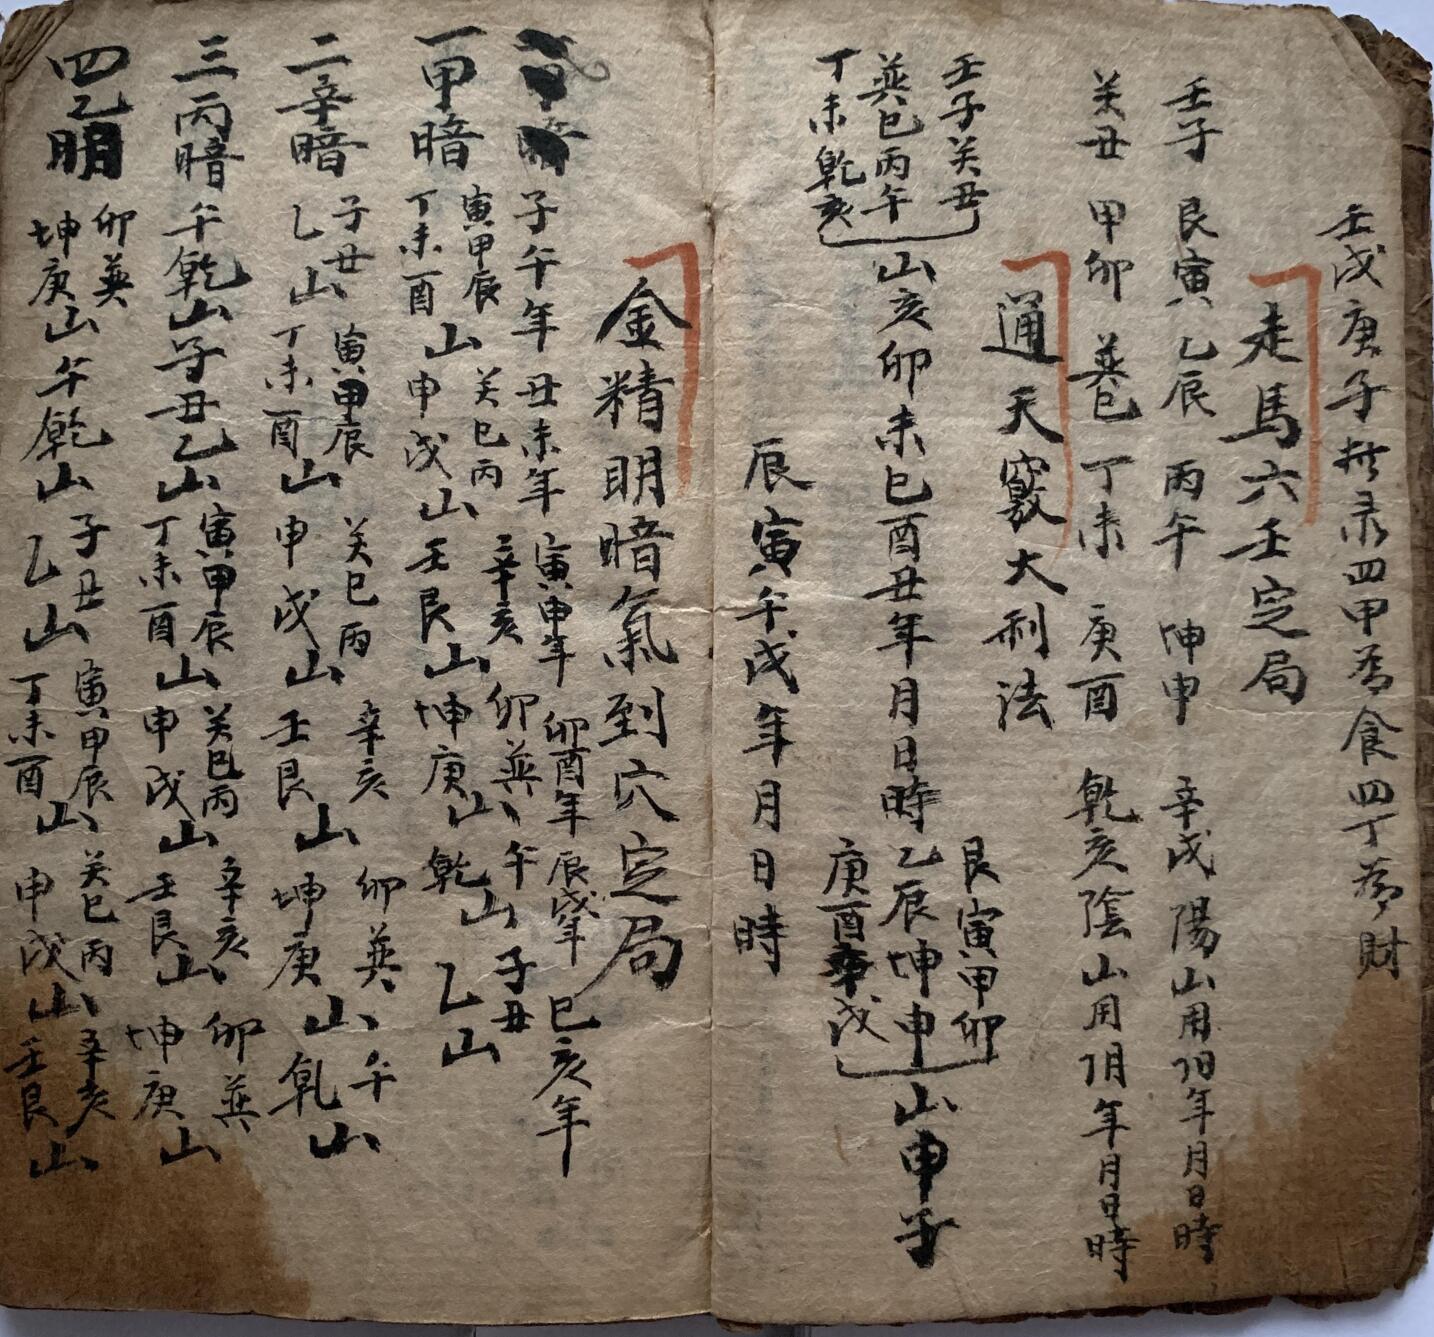 壬戌庚子 录四甲為食四丁為財
走馬六壬定局
壬子 艮寅 乙辰 丙午 坤申 辛戌陽山用阳年月日時
关丑 甲卯 巽巳 丁未 庚酉 乾亥陰山用阴年月日時
通天竅大利法
壬子关丑
巽巳丙午
丁未乾亥
山亥卯未巳酉丑年月日時
艮寅甲卯
乙辰坤申
庚酉 戌
山申子
辰寅午戌年月日時
金精明暗氣到穴定局
子午年 丑未年 寅申年 卯酉年 辰戌年 巳亥年
一甲暗 寅甲辰丁未酉山 关巳丙申戌山 辛亥壬艮山 卯巽坤庚山 午乾山 子丑乙山
二辛暗 子丑乙山 寅甲辰丁未酉山 关巳丙申戌山 辛亥壬艮山 卯巽坤庚山 午乹山
三丙暗 午乾山 子丑乙山 寅甲辰丁未酉山 关巳丙申戌山 辛亥壬艮山 卯巽坤庚山
四乙明 卯巽坤庚山 午乾山 子丑乙山 寅甲辰丁未酉山 关巳丙申戌山 辛亥壬艮山